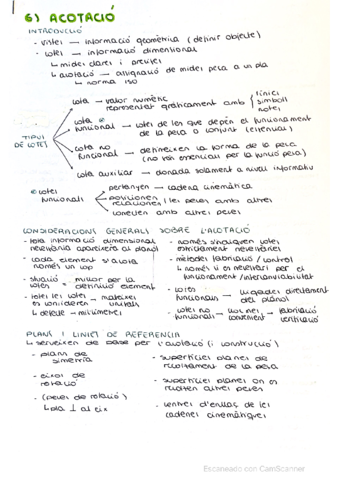 6) ACOTACIÓ
INTRODUCCIÓ
- vistes → informació geomètrica (definir objecte)
- cotes → informació dimensional
↳ mides clares i precises
↳ acotació → assignació de mides peça a un pla
↳ norma ISO
TIPUS DE COTES
cota → valor numèric
representat gràficament amb línies
símbols
notes
cota funcional → cotes de les que depèn el funcionament
de la peça o conjunt (essencials)
cota no funcional → defineixen la forma de la peça
(no són essencials per la funció peça)
cota auxiliar → donada solament a nivell informatiu
cotes funcionals
pertanyen → cadena cinemàtica
posicionen
relacionen les peces amb altres
connecten amb altres peces
CONSIDERACIONS GENERALS SOBRE L'ACOTACIÓ
- tota informació dimensional
necessària apareixerà al plànol
- cada element s'acota
només un cop
- situació → millor per la
cotes = definició element
- totes les cotes → mateixes
es consideren unitats
↳ defecte → mil·límetres
- només s'indiquen cotes
estrictament necessàries
- mètodes fabricació / control
↳ només si és necessari per el
funcionament / intercanviabilitat
- cotes funcionals → lligades directament
del plànol
- cotes no funcionals → fabricació
verificació
PLANS I LÍNIES DE REFERÈNCIA
↳ serveixen de base per l'acotació (i construcció)
- plans de
simetria
- eixos de
rotació
- (peces de rotació)
↳ pla ⊥ al eix
- superfícies planes de
recolzament de la peça
- superfícies planes on es
recolzen altres peces
- centres d'enllaç de les
cadenes cinemàtiques
Escaneado con CamScanner